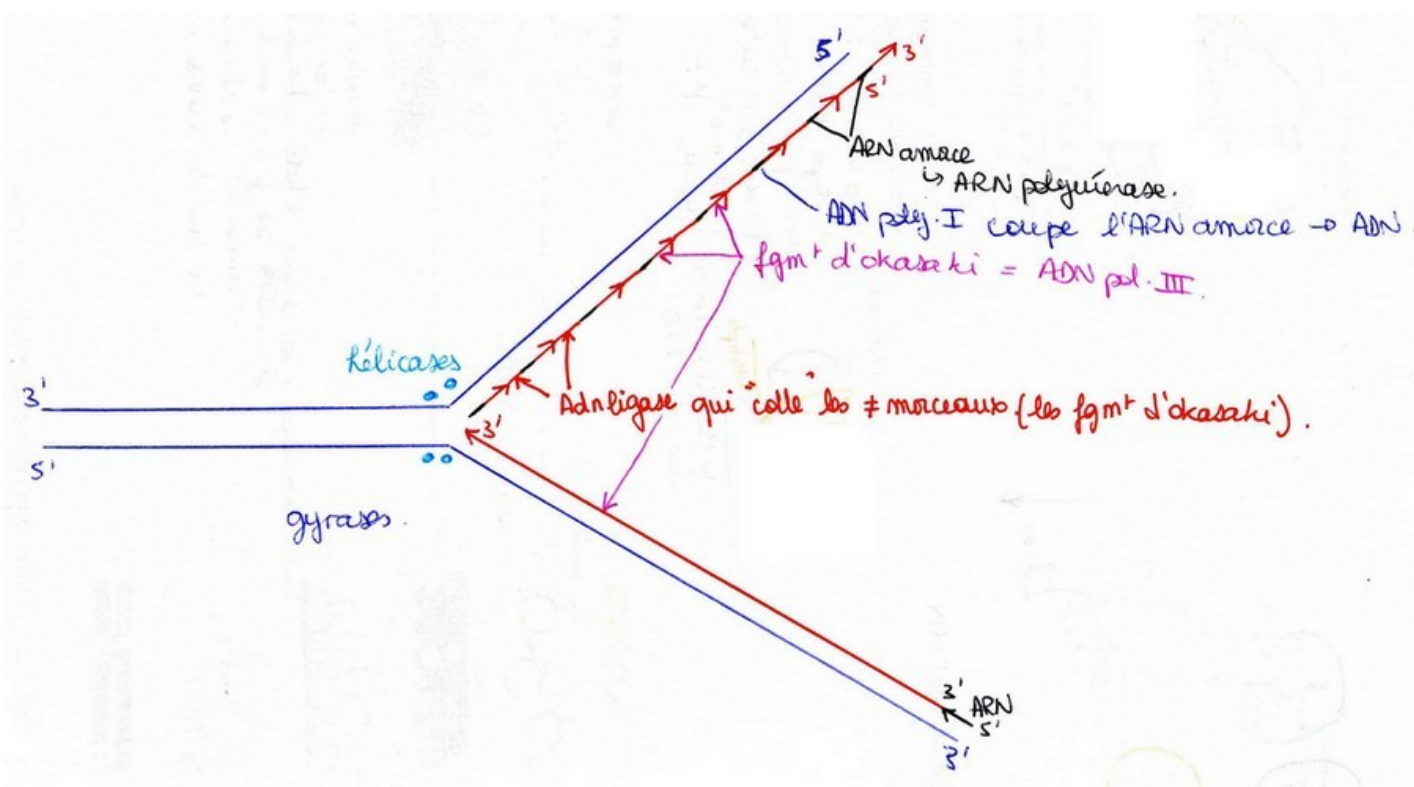 5'
3'
5'
ARN amorce
↳ ARN polymérase.
ADN poly. I coupe l'ARN amorce → ADN.
fgmt d'okasaki = ADN pol. III.
hélicases
3'
Adn ligase qui "colle" les ≠ morceaux (les fgmt d'okasaki).
3'
5'
gyrases.
3'
ARN
5'
3'